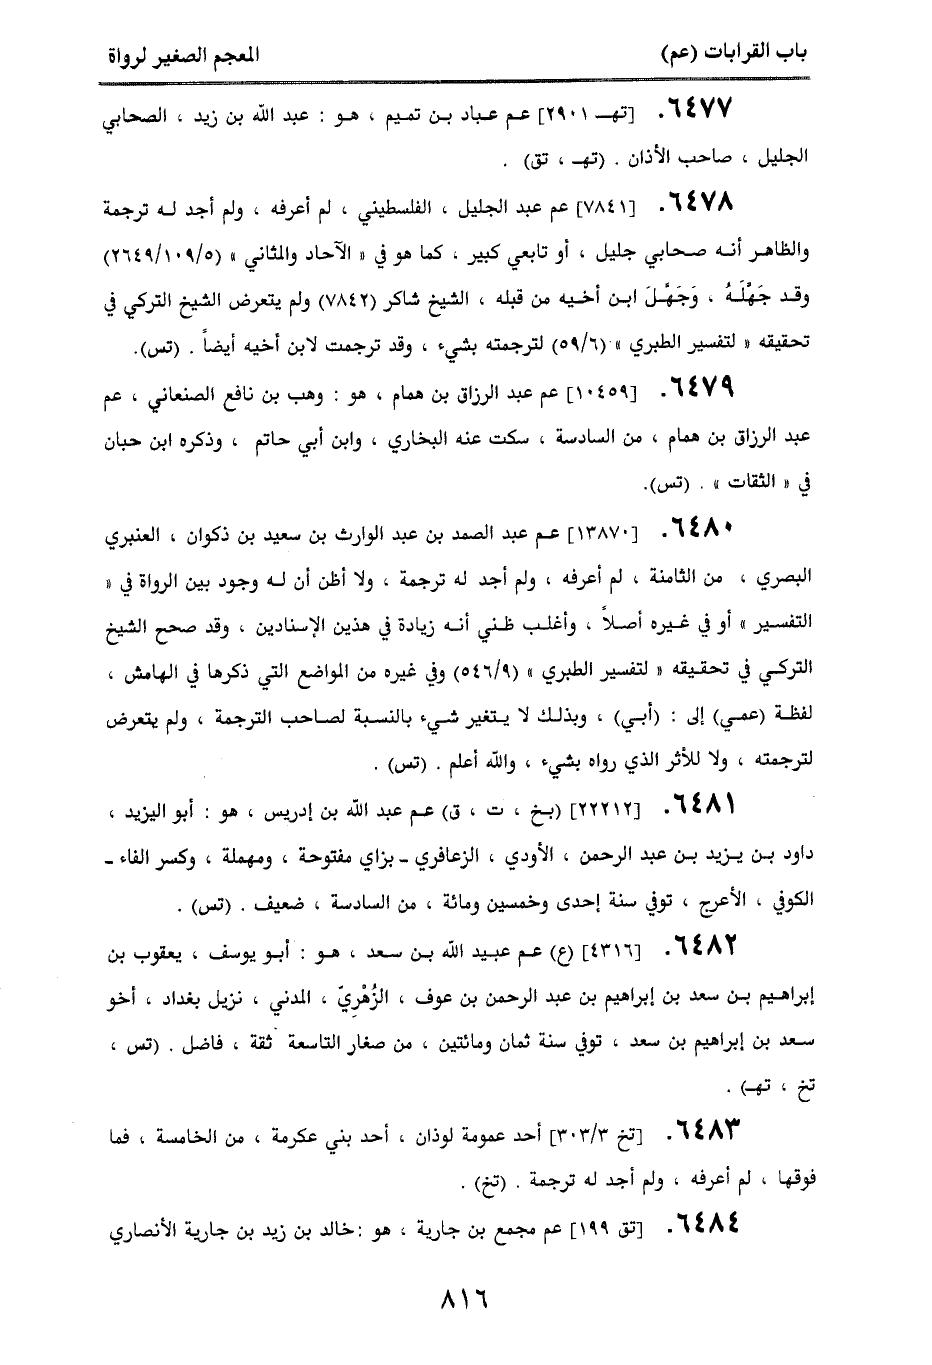 باب القرابات (عم)
المعجم الصغير لرواة
٦٤٧٧. [تهـ ٢٩٠١] عم عباد بن تميم ، هو : عبد الله بن زيد ، الصحابي
الجليل ، صاحب الأذان . (تهـ ، تق) .
٦٤٧٨. [٧٨٤١] عم عبد الجليل ، الفلسطيني ، لم أعرفه ، ولم أجد له ترجمة
والظاهر أنه صحابي جليل ، أو تابعي كبير ، كما هو في « الآحاد والمثاني » (٢٦٤٩/١٠٩/٥)
وقد جَهَّلَهُ ، وَجَهَّلَ ابن أخيه من قبله ، الشيخ شاكر (٧٨٤٢) ولم يتعرض الشيخ التركي في
تحقيقه « لتفسير الطبري » (٥٩/٦) لترجمته بشيء ، وقد ترجمت لابن أخيه أيضاً . (تس).
٦٤٧٩. [١٠٤٥٩] عم عبد الرزاق بن همام ، هو : وهب بن نافع الصنعاني ، عم
عبد الرزاق بن همام ، من السادسة ، سكت عنه البخاري ، وابن أبي حاتم ، وذكره ابن حبان
في « الثقات » . (تس).
٦٤٨٠. [١٣٨٧٠] عم عبد الصمد بن عبد الوارث بن سعيد بن ذكوان ، العنبري
البصري ، من الثامنة ، لم أعرفه ، ولم أجد له ترجمة ، ولا أظن أن له وجود بين الرواة في «
التفسير » أو في غيره أصلاً ، وأغلب ظني أنه زيادة في هذين الإسنادين ، وقد صحح الشيخ
التركي في تحقيقه « لتفسير الطبري » (٥٤٦/٩) وفي غيره من المواضع التي ذكرها في الهامش ،
لفظة (عمي) إلى : (أبي) ، وبذلك لا يتغير شيء بالنسبة لصاحب الترجمة ، ولم يتعرض
لترجمته ، ولا للأثر الذي رواه بشيء ، والله أعلم . (تس) .
٦٤٨١. [٢٢٢١٢] (بخ ، ت ، ق) عم عبد الله بن إدريس ، هو : أبو اليزيد ،
داود بن يزيد بن عبد الرحمن ، الأودي ، الزعافري ـ بزاي مفتوحة ، ومهملة ، وكسر الفاء ـ
الكوفي ، الأعرج ، توفي سنة إحدى وخمسين ومائة ، من السادسة ، ضعيف . (تس) .
٦٤٨٢. [٤٣١٦] (ع) عم عبيد الله بن سعد ، هو : أبو يوسف ، يعقوب بن
إبراهيم بن سعد بن إبراهيم بن عبد الرحمن بن عوف ، الزُهْريّ ، المدني ، نزيل بغداد ، أخو
سعد بن إبراهيم بن سعد ، توفي سنة ثمان ومائتين ، من صغار التاسعة ثقة ، فاضل . (تس ،
تخ ، تهـ) .
٦٤٨٣. [تخ ٣٠٣/٣] أحد عمومة لوذان ، أحد بني عكرمة ، من الخامسة ، فما
فوقها ، لم أعرفه ، ولم أجد له ترجمة . (تخ) .
٦٤٨٤. [تق ١٩٩] عم مجمع بن جارية ، هو :خالد بن زيد بن جارية الأنصاري
٨١٦